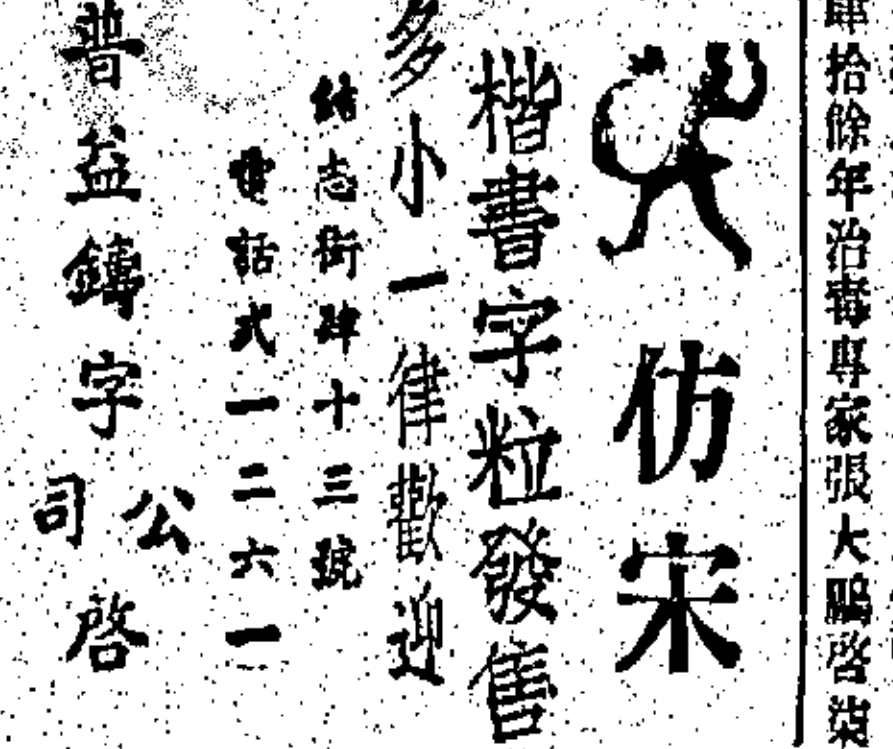 拾餘年治毒專家張大鵬啓柒
仿宋
楷書字粒發售
多小一律歡迎
結志街肆十三號
電話弍一二六一
普益鑄字公司啓